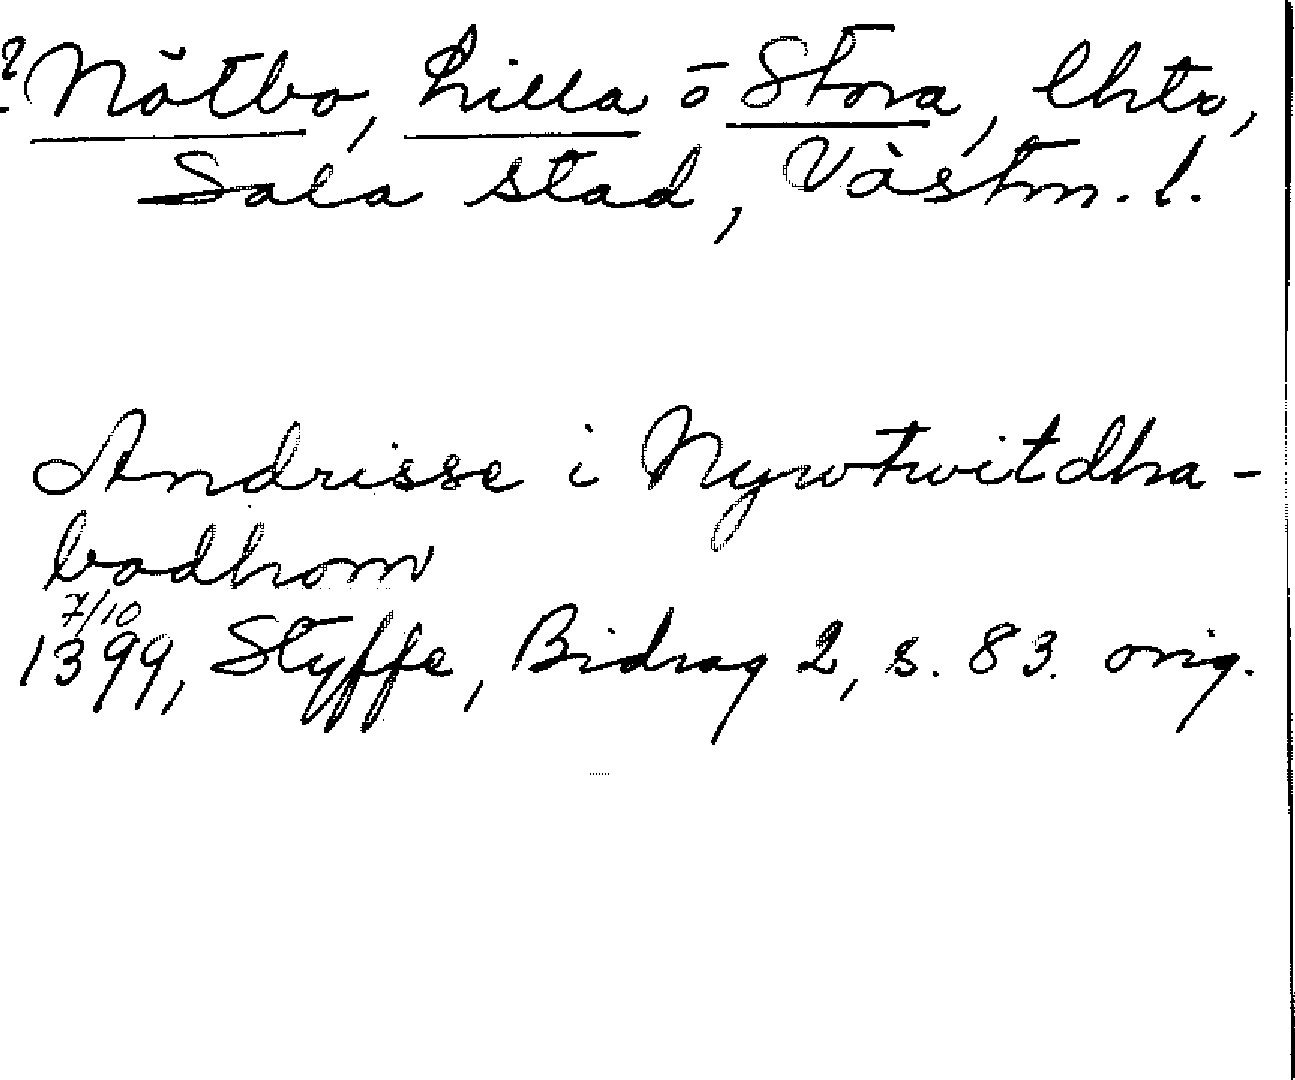 ? Nötbo, Lilla o Stora, Chts,
Sala stad, Västm. l.
Andrisse i Nywtwitdha-
bodhom
7/10
1399, Styffe, Bidrag 2, s. 83. orig.